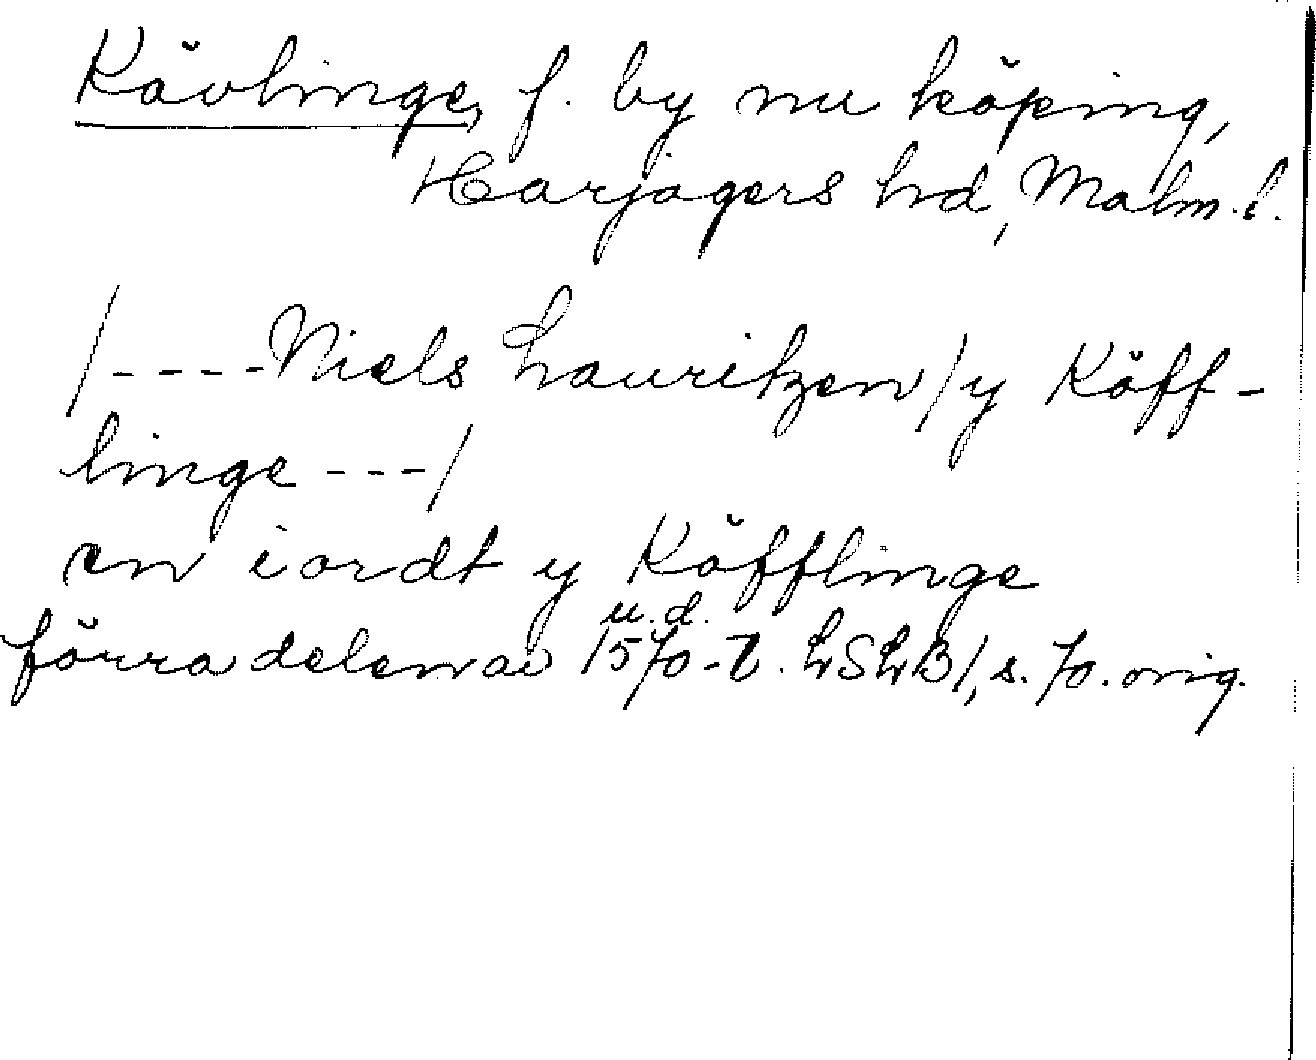 Kävlinge, f. by nu köping,
Harjagers hd, Malm. l.
/----Niels Lauritzen/y Köff-
linge---/
en iordt y Köfflinge
u. d.
förra delen av 1570-t. LSLB1, s. 70. orig.